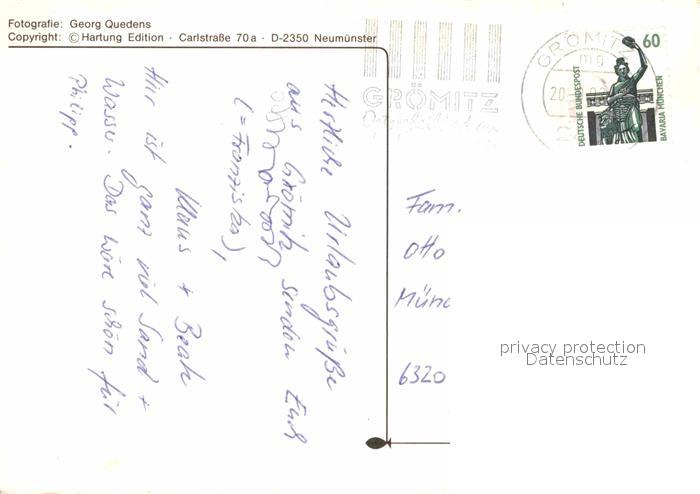 Fotografie: Georg Quedens
Copyright: © Hartung Edition · Carlstraße 70a · D-2350 Neumünster
Herzliche Urlaubsgrüße
aus Grömitz senden Euch
(= Franziska),
Klaus + Beate
Hier ist ganz viel Sand +
Wasser. Das wäre schön für
Philipp.
GRÖMITZ
GRÖMITZ
20.
60
DEUTSCHE BUNDESPOST
BAVARIA MÜNCHEN
Fam.
Otto
Münc
6320
privacy protection
Datenschutz